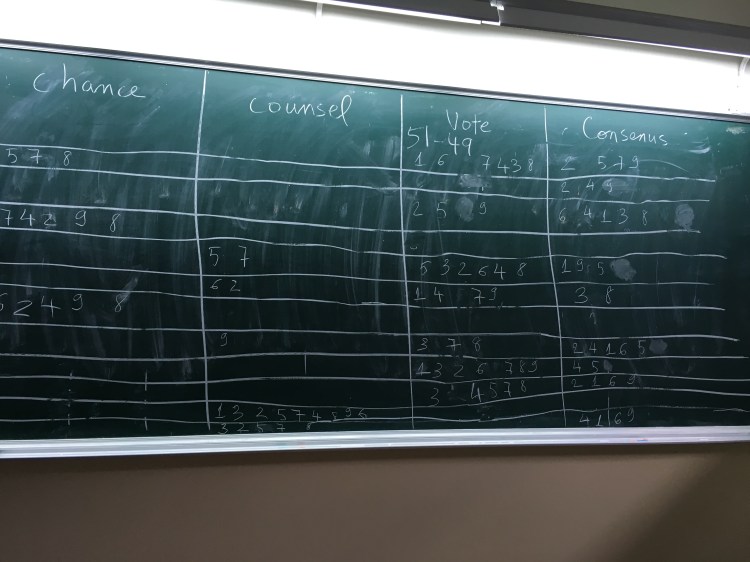 chance counsel Vote Consenus
51-49
5 7 8 1 6 7 4 3 8 2 5 7 9
2 4 9
7 4 2 9 8 2 5 9 6 4 1 3 8
5 7 5 3 2 6 4 8 1 9 5
6 2 1 4 7 9 3 8
6 2 4 9 8
9 3 7 8 2 4 1 6 5
1 3 2 6 7 8 9 4 5
3 4 5 7 8 2 1 6 9
1 3 2 5 7 4 8 9 6 4 1 6 9
3 2 5 7